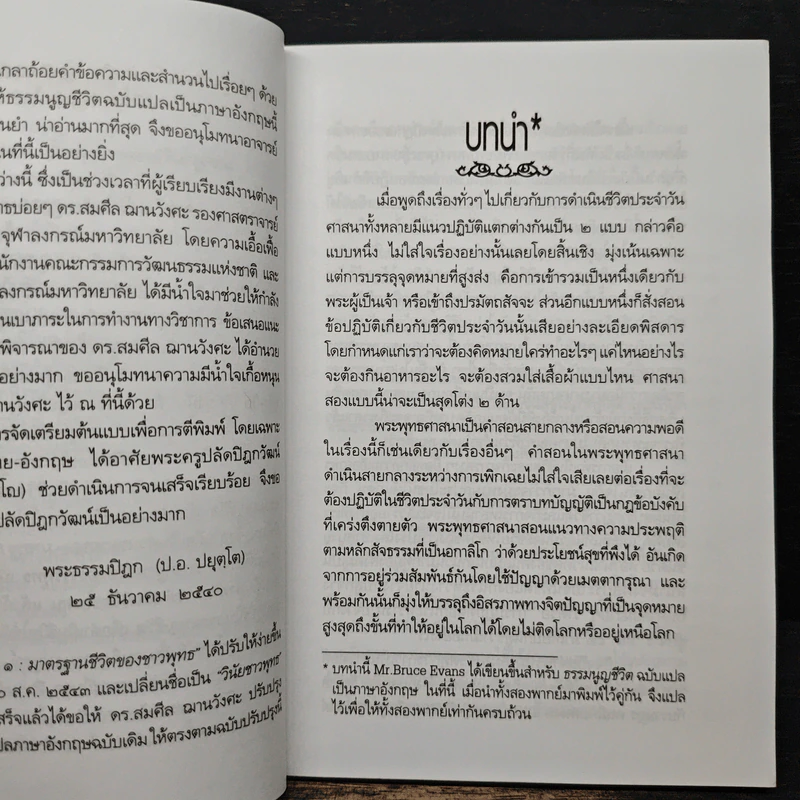 กลาถ้อยคำข้อความและสำนวนไปเรื่อยๆ ด้วย
ห้ธรรมนูญชีวิตฉบับแปลเป็นภาษาอังกฤษนี้
นยำ น่าอ่านมากที่สุด จึงขออนุโมทนาอาจารย์
นที่นี้เป็นอย่างยิ่ง
ว่างนี้ ซึ่งเป็นช่วงเวลาที่ผู้เรียบเรียงมีงานต่างๆ
าธบ่อยๆ ดร.สมศีล ฌานวังศะ รองศาสตราจารย์
จุฬาลงกรณ์มหาวิทยาลัย โดยความเอื้อเฟื้อ
นักงานคณะกรรมการวัฒนธรรมแห่งชาติ และ
ลงกรณ์มหาวิทยาลัย ได้มีน้ำใจมาช่วยให้กำลัง
นเบาภาระในการทำงานทางวิชาการ ข้อเสนอแนะ
พิจารณาของ ดร.สมศีล ฌานวังศะ ได้อำนวย
อย่างมาก ขออนุโมทนาความมีน้ำใจเกื้อหนุน
านวังศะ ไว้ ณ ที่นี้ด้วย
ารจัดเตรียมต้นแบบเพื่อการตีพิมพ์ โดยเฉพาะ
ย-อังกฤษ ได้อาศัยพระครูปลัดปิฎกวัฒน์
โญ) ช่วยดำเนินการจนเสร็จเรียบร้อย จึงขอ
ปลัดปิฎกวัฒน์เป็นอย่างมาก
พระธรรมปิฎก (ป.อ. ปยุตฺโต)
๒๕ ธันวาคม ๒๕๔๐
๑ : มาตรฐานชีวิตของชาวพุทธ" ได้ปรับให้ง่ายขึ้น
๐ ส.ค. ๒๕๔๓ และเปลี่ยนชื่อเป็น "วินัยชาวพุทธ"
สร็จแล้วได้ขอให้ ดร.สมศีล ฌานวังศะ ปรับปรุง
ปลภาษาอังกฤษฉบับเดิม ให้ตรงตามฉบับปรับปรุงนี้
บทนำ*
เมื่อพูดถึงเรื่องทั่วๆ ไปเกี่ยวกับการดำเนินชีวิตประจำวัน
ศาสนาทั้งหลายมีแนวปฏิบัติแตกต่างกันเป็น ๒ แบบ กล่าวคือ
แบบหนึ่ง ไม่ใส่ใจเรื่องอย่างนั้นเลยโดยสิ้นเชิง มุ่งเน้นเฉพาะ
แต่การบรรลุจุดหมายที่สูงส่ง คือการเข้ารวมเป็นหนึ่งเดียวกับ
พระผู้เป็นเจ้า หรือเข้าถึงปรมัตถสัจจะ ส่วนอีกแบบหนึ่งก็สั่งสอน
ข้อปฏิบัติเกี่ยวกับชีวิตประจำวันนั้นเสียอย่างละเอียดพิสดาร
โดยกำหนดแก่เราว่าจะต้องคิดหมายใครทำอะไรๆ แค่ไหนอย่างไร
จะต้องกินอาหารอะไร จะต้องสวมใส่เสื้อผ้าแบบไหน ศาสนา
สองแบบนี้น่าจะเป็นสุดโต่ง ๒ ด้าน
พระพุทธศาสนาเป็นคำสอนสายกลางหรือสอนความพอดี
ในเรื่องนี้ก็เช่นเดียวกับเรื่องอื่นๆ คำสอนในพระพุทธศาสนา
ดำเนินสายกลางระหว่างการเพิกเฉยไม่ใส่ใจเสียเลยต่อเรื่องที่จะ
ต้องปฏิบัติในชีวิตประจำวันกับการตราบทบัญญัติเป็นกฎข้อบังคับ
ที่เคร่งตึงตายตัว พระพุทธศาสนาสอนแนวทางความประพฤติ
ตามหลักสัจธรรมที่เป็นอกาลิโก ว่าด้วยประโยชน์สุขที่พึงได้ อันเกิด
จากการอยู่ร่วมสัมพันธ์กันโดยใช้ปัญญาด้วยเมตตากรุณา และ
พร้อมกันนั้นก็มุ่งให้บรรลุถึงอิสรภาพทางจิตปัญญาที่เป็นจุดหมาย
สูงสุดถึงขั้นที่ทำให้อยู่ในโลกได้โดยไม่ติดโลกหรืออยู่เหนือโลก
* บทนำนี้ Mr.Bruce Evans ได้เขียนขึ้นสำหรับ ธรรมนูญชีวิต ฉบับแปล
เป็นภาษาอังกฤษ ในที่นี้ เมื่อนำทั้งสองพากย์มาพิมพ์ไว้คู่กัน จึงแปล
ไว้เพื่อให้ทั้งสองพากย์เท่ากันครบถ้วน